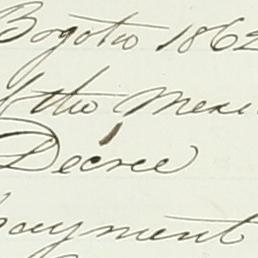 Bogota 1862
of the Mexi
Decree
payment